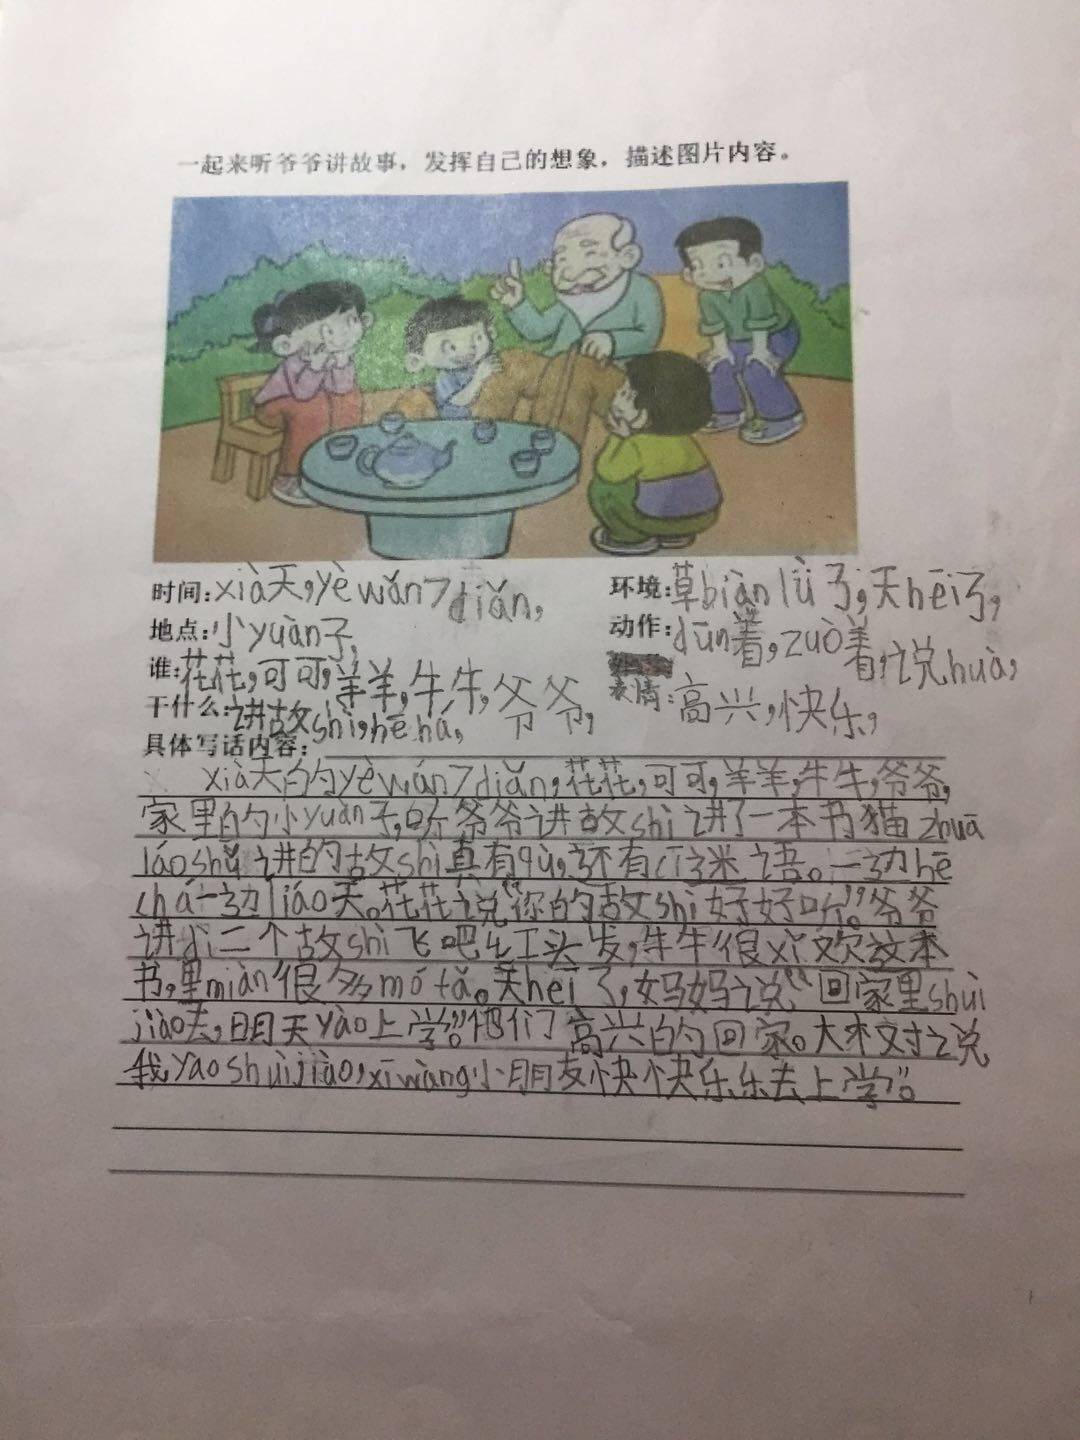 一起来听爷爷讲故事，发挥自己的想象，描述图片内容。
时间：xià天，yè wǎn 7 diǎn，
环境：草biàn lǜ了，天hēi了，
地点：小yuàn子，
动作：dūn着，zuò着，说huà，
谁：花花，可可，羊羊，牛牛，爷爷，
表情：高兴，快乐，
干什么：讲故shì，hē há，
具体写话内容：
xià天的yè wán 7 diǎn，花花，可可，羊羊，牛牛，爷爷，
家里的小yuàn子，听爷爷讲故shì讲了一本书猫zhuā
láoshǔ讲的故shì真有qù，还有cí谜语。一边hē
chá一边liáo天。花花说“你的故shì好好听。”爷爷
讲dì二个故shì飞吧红头发，牛牛很xǐ欢这本
书，里miàn很多mó fǎ。天hēi了，妈妈说“回家里shuì
jiào去，明天yào上学。”他们高兴的回家。大木对说
我yao shuìjiào，xīwàng小朋友快快乐乐去上学”。